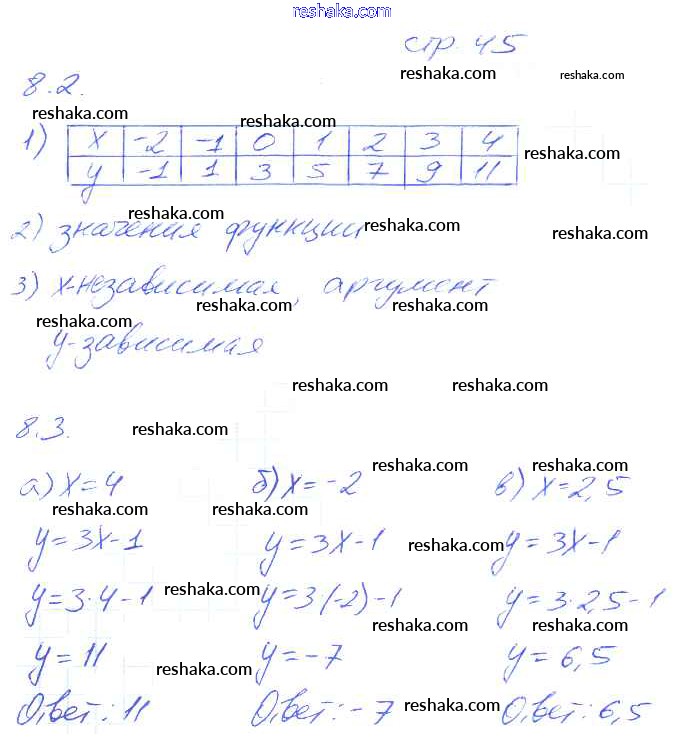 reshaka.com
стр. 45
reshaka.com reshaka.com
8.2.
reshaka.com reshaka.com
1) x -2 -1 0 1 2 3 4
reshaka.com
y -1 1 3 5 7 9 11
reshaka.com reshaka.com
2) значения функции
reshaka.com
3) x-независимая, аргумент
reshaka.com reshaka.com
reshaka.com
y-зависимая
reshaka.com reshaka.com
8.3. reshaka.com
reshaka.com reshaka.com
а) x=4 б) x=-2 в) x=2,5
reshaka.com reshaka.com
y=3x-1 y=3x-1 y=3x-1
reshaka.com
reshaka.com
y=3·4-1 y=3(-2)-1 y=3·2,5-1
reshaka.com reshaka.com
y=11 y=-7 y=6,5
reshaka.com
Ответ: 11 Ответ: -7 Ответ: 6,5
reshaka.com reshaka.com